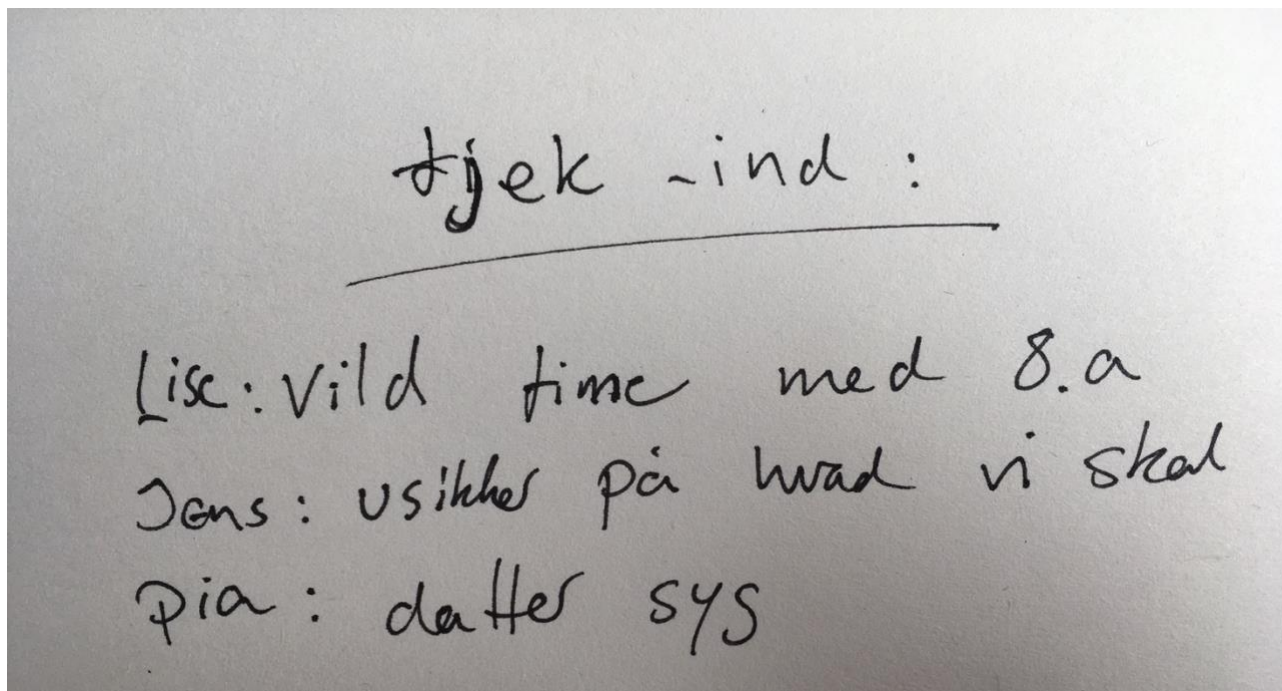 tjek-ind:
Lise: Vild time med 8.a
Jens: usikker på hvad vi skal
Pia: datter syg